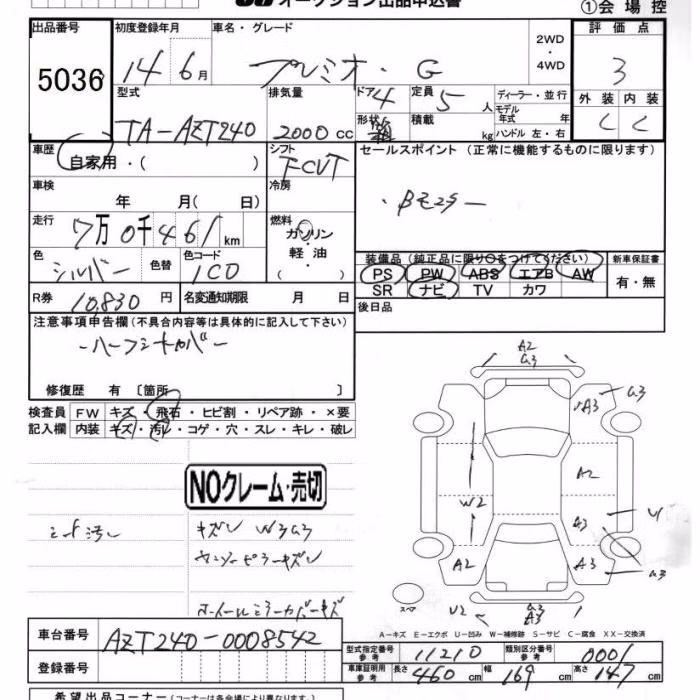 オークション出品申込書
①会場控
出品番号 初度登録年月 車名・グレード 2WD・4WD 評価点
5036 14年 6月 プレミオ・G 3
型式 排気量 ドア 4 定員 5人 ディーラー・並行 外装 内装
TA-AZT240 2000cc 形状 積載 kg モデル年式 年 ハンドル 左・右 C C
車歴 自家用・( ) シフト FCVT セールスポイント(正常に機能するものに限ります)
車検 年 月( 日) 冷房
走行 7万0千461km 燃料 ガソリン 軽油
色 シルバー 色替 色コード 1C0 装備品(純正品に限り○をつけてください) 新車保証書
PS PW ABS エアB AW 有・無
SR ナビ TV カワ
R券 10,830円 名変通知期限 月 日 後日品
注意事項申告欄(不具合内容等は具体的に記入して下さい)
ハーフシートカバー
修復歴 有〔箇所 〕
検査員 FW キズ・飛石・ヒビ割・リペア跡・×要
記入欄 内装 キズ・汚レ・コゲ・穴・スレ・キレ・破レ
A2
G3
A3 G3
A2
W2
A3
A2 A3 G3
U2 G3
A3
スペア
NOクレーム・売切
シート汚レ キズ W3G3
A-キズ E-エクボ U-凹み W-補修跡 S-サビ C-腐食 XX-交換済
車台番号 AZT240-0008542
型式指定番号 参考 11210 類別区分番号 参考 0001
登録番号 車庫証明用 参考 長さ 460cm 幅 169cm 高さ 147cm
希望出品コーナー(コーナーは各会場により